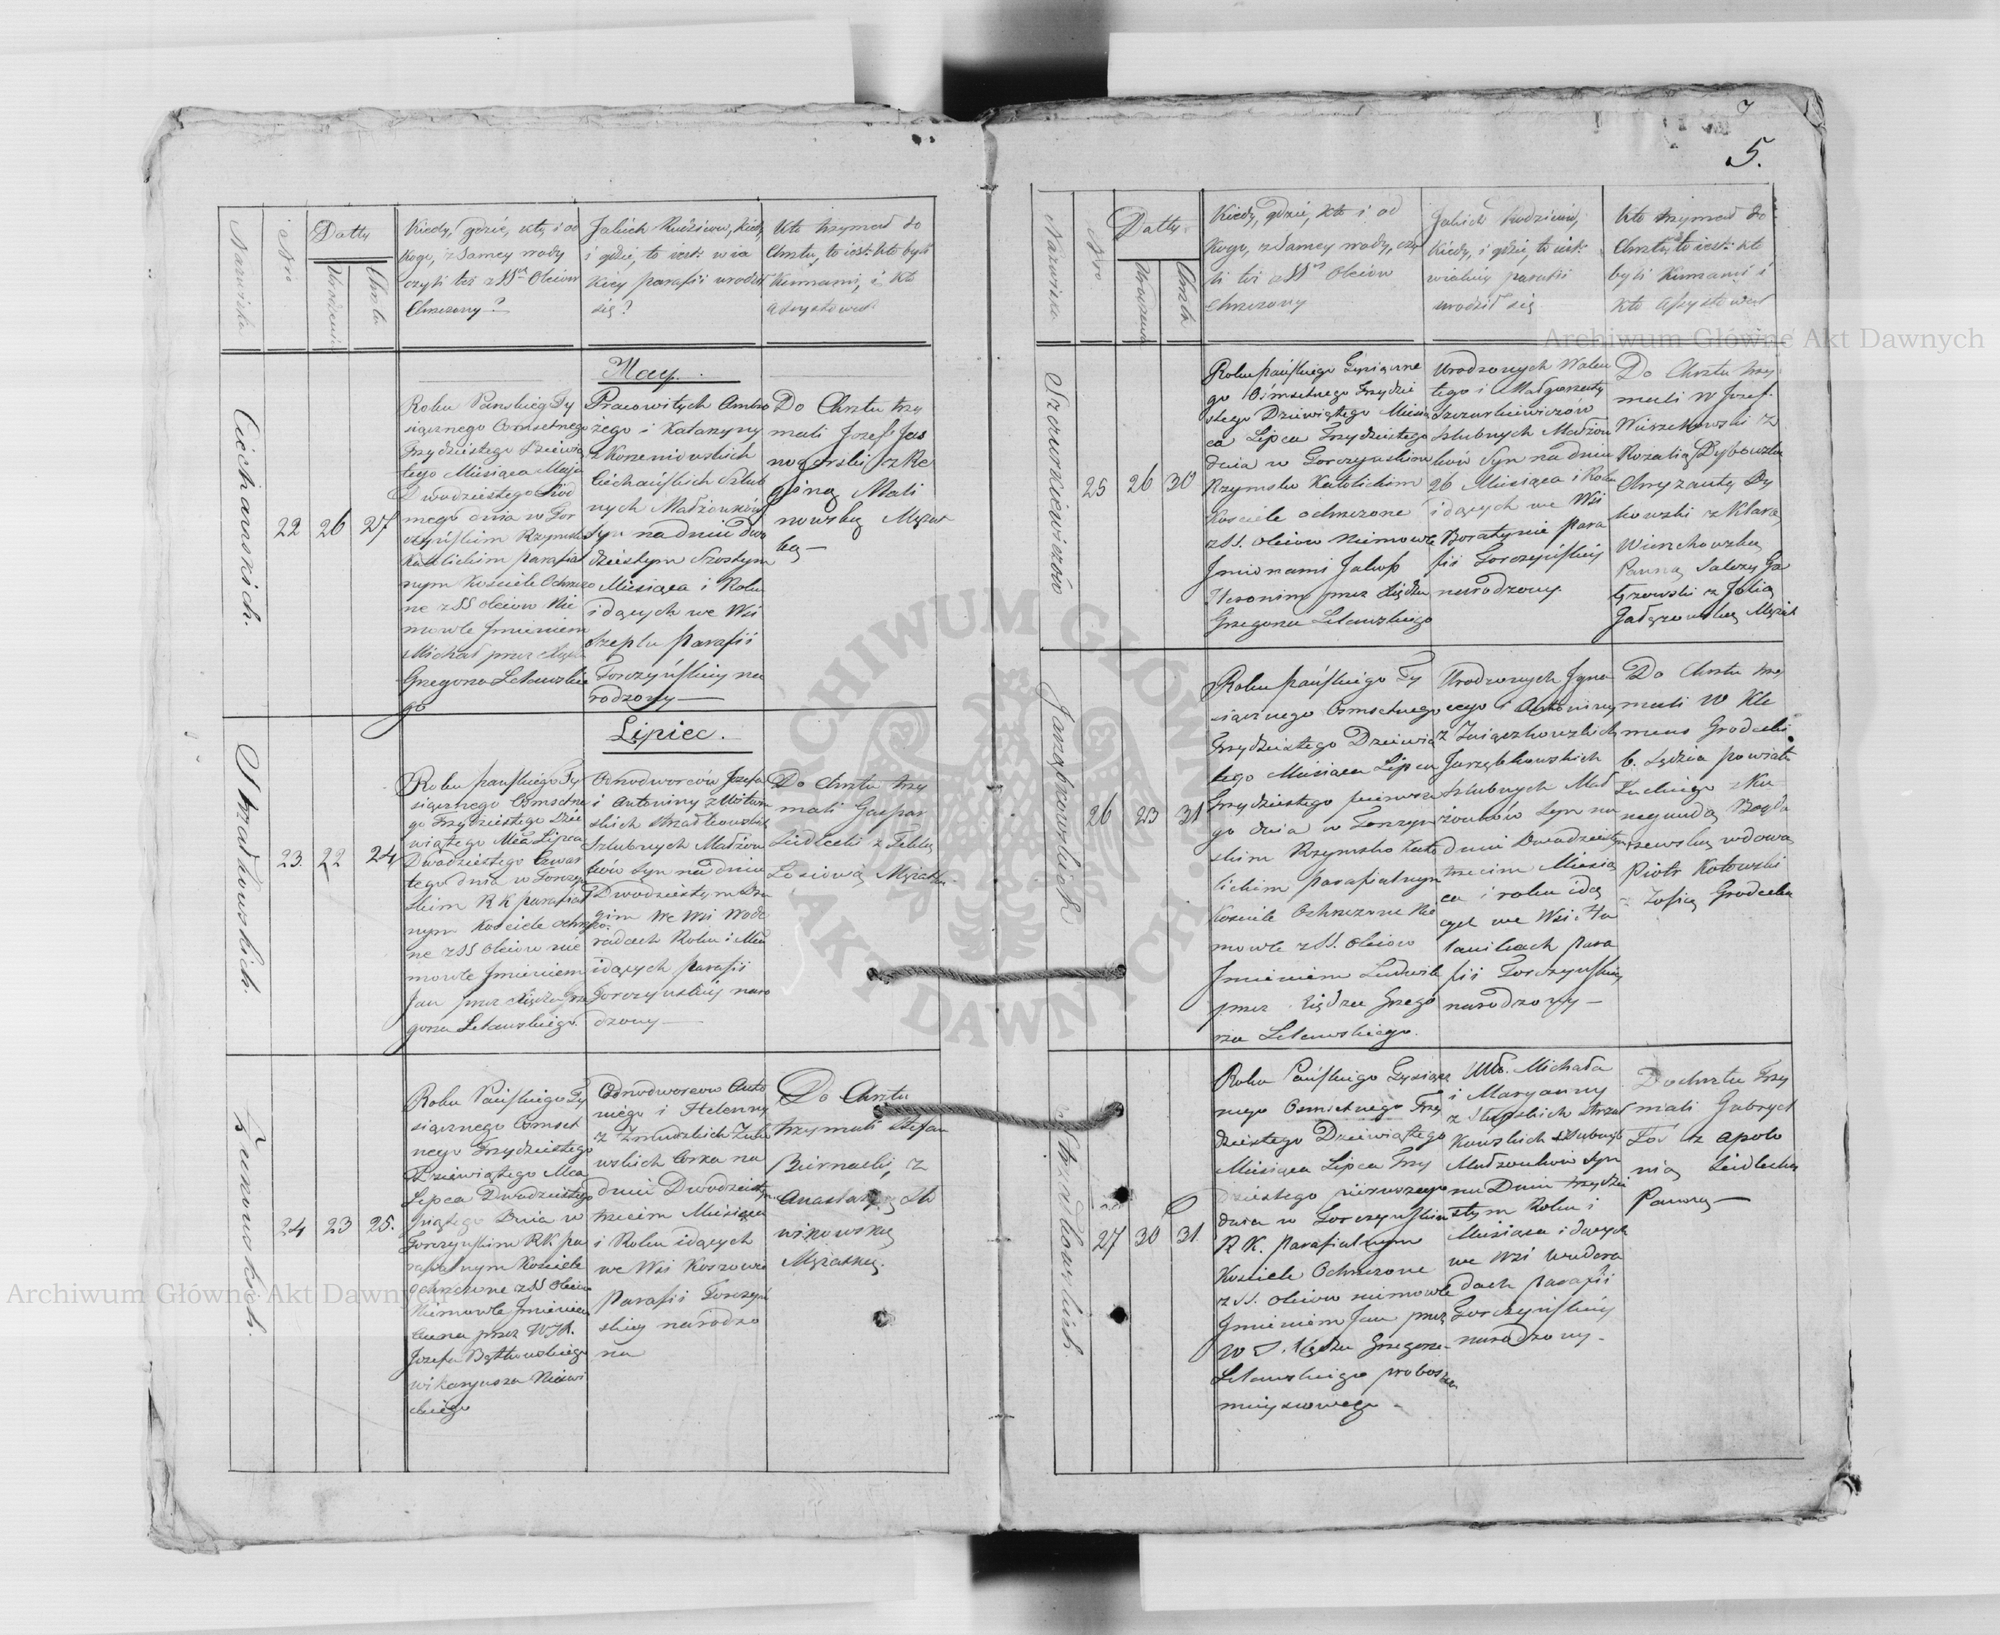 5.
Nazwiska
Nro
Datty
Urodzenia
Chrztu
Kiedy, gdzie, kto, i od
kogo, z samey wody
czyli też z SS Oleiow
Chrzczony?
Jakich Rodziców, kiedy
i gdzie, to iest: w ia
kiey parafii urodził
się?
Kto trzymał do
Chrztu, to iest: kto byli
Kumami, i kto
assystował
May.
Ciechanskich.
22
26
27
Roku Panskiego Ty
siącznego Osmsetnego
Trzydziestego Dziewią
tego Miesiąca Maja
Dwudziestego Siód
mego dnia w Tor
czyńskim Rzymsko
Katolickim parafial
nym Kościele Ochrzczo
ne z SS Oleiow Nie
mowle Jmieniem
Michał przez Księdza
Grzegorza Letowskie
go
Pracowitych Ambro
zego i Katarzyny
z Korzeniowskich
Ciechańskich Szlub
nych Małżonków
Syn na dniu dwu
dziestym Szostym
Miesiąca i Roku
idących we Wsi
Szeplu parafii
Torczyńskiey na
rodzony —
Do Chrztu trzy
mali Jozef Jas
nogorski z Re
giną Mali
nowską Mężat
ką —
Lipiec.
Strzałkowskich.
23.
22
24
Roku pańskiego Ty
siącznego Osmsetne
go Trzydziestego Dzie
wiątego Mca Lipca
Dwudziestego Czwar
tego dnia w Torczyń
skim RK parafial
nym Kościele ochrzczo
ne z SS Oleiow nie
mowle Jmieniem
Jan przez Księdza Grze
gorza Letowskiego.
Odnodworców Jozefa
i Antoniny
skich Strzałkowskich
Szlubnych Małżon
ków Syn na dniu
Dwudziestym Dru
gim we Wsi Wode
radach Roku i Mca
idących parafii
Torczyńskiey naro
dzony —
Do Chrztu trzy
mali Gaspar
Siedlecki z Teklą
Losiową Mężatką.
24
23
25.
Roku Pańskiego Ty
siącznego Osmset
nego Trzydziestego
Dziewiątego Mca
Lipca Dwudziestego
Piątego Dnia w
Torczyńskim RK pa
rafialnym Kościele
ochrzczone z SS Oleiow
Niemowle Jmieniem
Anna przez WJX.
Jozefa Bątkowskiego
wikaryusza Nieswi
ckiego
Odnodworcow Anto
niego i Helenny
z Żmudzkich
wskich Corka na
dniu Dwudziestym
trzecim Miesiąca
i Roku idących
we Wsi Koszowie
parafii Torczyń
skiey narodzo
na
Do Chrztu
trzymali Stefan
Biernacki z
Anastazyą
wikowską
Mężatką.
Nazwiska
Nro
Datty
Urodzenia
Chrztu
Kiedy, gdzie, kto i od
kogo, z samey wody, czy
li też z SS Oleiow
Chrzczony
Jakich Rodziców,
Kiedy, i gdzie, to iest:
w iakiey parafii
urodził się
Kto trzymał do
Chrztu, to iest: kto
byli Kumami i
kto assystował
Szczurkiewiczów
25
26
30
Roku pańskiego Tysiączne
go Osmsetnego Trzydzie
stego Dziewiątego Miesią
ca Lipca Trzydziestego
dnia w Torczyńskim
Rzymsko Katolickim
Kościele ochrzczone
z SS. Oleiow Niemowle
Jmionami Jakub
Heronim przez Księdza
Grzegorza Letowskiego
Urodzonych Walen
tego i Małgorzaty
Szczurkiewiczów
Szlubnych Małżon
ków Syn na dniu
26 Miesiąca i Roku
idących we Wsi
Boratynie para
fii Torczyńskiey
narodzony.
Do Chrztu trzy
mali W Jozef
Wierzchowski z
Rozalią Dybowską
Chryzanty Dy
bowski z Klarą
Wierzchowską
Panną Salezy Ga
łęzowski z Julią
Gałęzowską Mężat
Jarząbkowskich
26
23
31
Roku pańskiego Ty
siącznego Osmsetnego
Trzydziestego Dziewią
tego Miesiąca Lipca
Trzydziestego pierwsze
go dnia w Torczyń
skim Rzymsko Kato
lickim parafialnym
Kościele Ochrzczone Nie
mowle z SS. Oleiow
Jmieniem Ludwik
przez Księdza Grzego
rza Letowskiego.
Urodzonych Jgna
cego i Antoniny
z Związkowskich
Jarząbkowskich
Szlubnych Mał
żonków Syn na
dniu Dwudziestym
trzecim Miesią
ca i roku idą
cych we Wsi
parafii Torczyńskiey
narodzony —
Do Chrztu trzy
mali W Kle
mens Grodecki
b. Sędzia powiatu
Łuckiego z Ku
negundą
szewską wdową
Piotr Kotowski
z Zofią Grodecką
Strzałkowskich.
27
30
31
Roku Pańskiego Tysiącz
nego Osmsetnego Trzy
dziestego Dziewiątego
Miesiąca Lipca Trzy
dziestego pierwszego
dnia w Torczyńskim
R K. parafialnym
Kościele Ochrzczone
z SS. Oleiow niemowle
Jmieniem Jan przez
W J. Księdza Grzegorza
Letowskiego probosza
mieyscowego
Michała
i Maryanny
z Słupskich Strzał
Kowskich Szlubnych
Małżonków Syn
na Dniu trzydzie
stym Roku i
Miesiąca idących
we Wsi Wudera
dach parafii
Torczyńskiey
narodzony.
Do chrztu trzy
mali Gabryel
Łoś z Apolo
nią Siedlecką
Panną —
Archiwum Główne Akt Dawnych
Archiwum Główne Akt Dawnych
ARCHIWUM GŁÓWNE AKT DAWNYCH